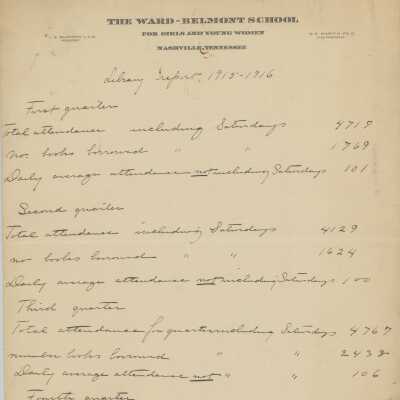 THE WARD-BELMONT SCHOOL
FOR GIRLS AND YOUNG WOMEN
NASHVILLE, TENNESSEE
Library report, 1915-1916
First quarter
Total attendance including Saturdays 4719
nos books borrowed " " 1769
Daily average attendance not including Saturdays 101
Second quarter
Total attendance including Saturdays 4129
no books borrowed " " 1624
Daily average attendance not including Saturdays 100
Third quarter
Total attendance for quarter including Saturdays 4767
number books borrowed " " 2432
Daily average attendance not " " 106
Fourth quarter